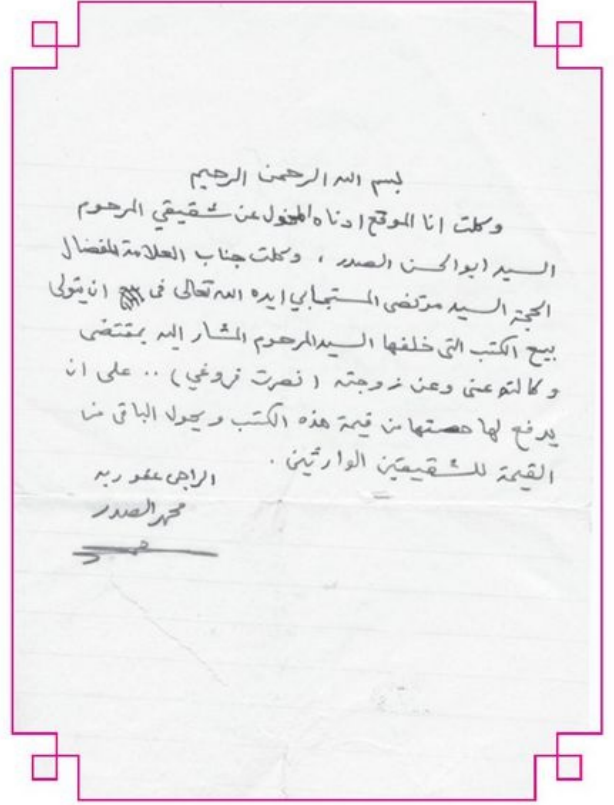 بسم الله الرحمن الرحيم
وكلت انا الموقع ادناه المخول عن شقيقي المرحوم
السيد ابوالحسن الصدر ، وكلت جناب العلامة المفضال
الحجة السيد مرتضى المستجابي ايده الله تعالى في ان يتولى
بيع الكتب التي خلفها السيد المرحوم المشار اليه بمقتضى
وكالته عني وعن زوجته (نصرت فروغي) .. على ان
يدفع لها حصتها من قيمة هذه الكتب ويحول الباقي من
القيمة للشقيقين الوارثين .
الراجي عفو ربه
محمد الصدر